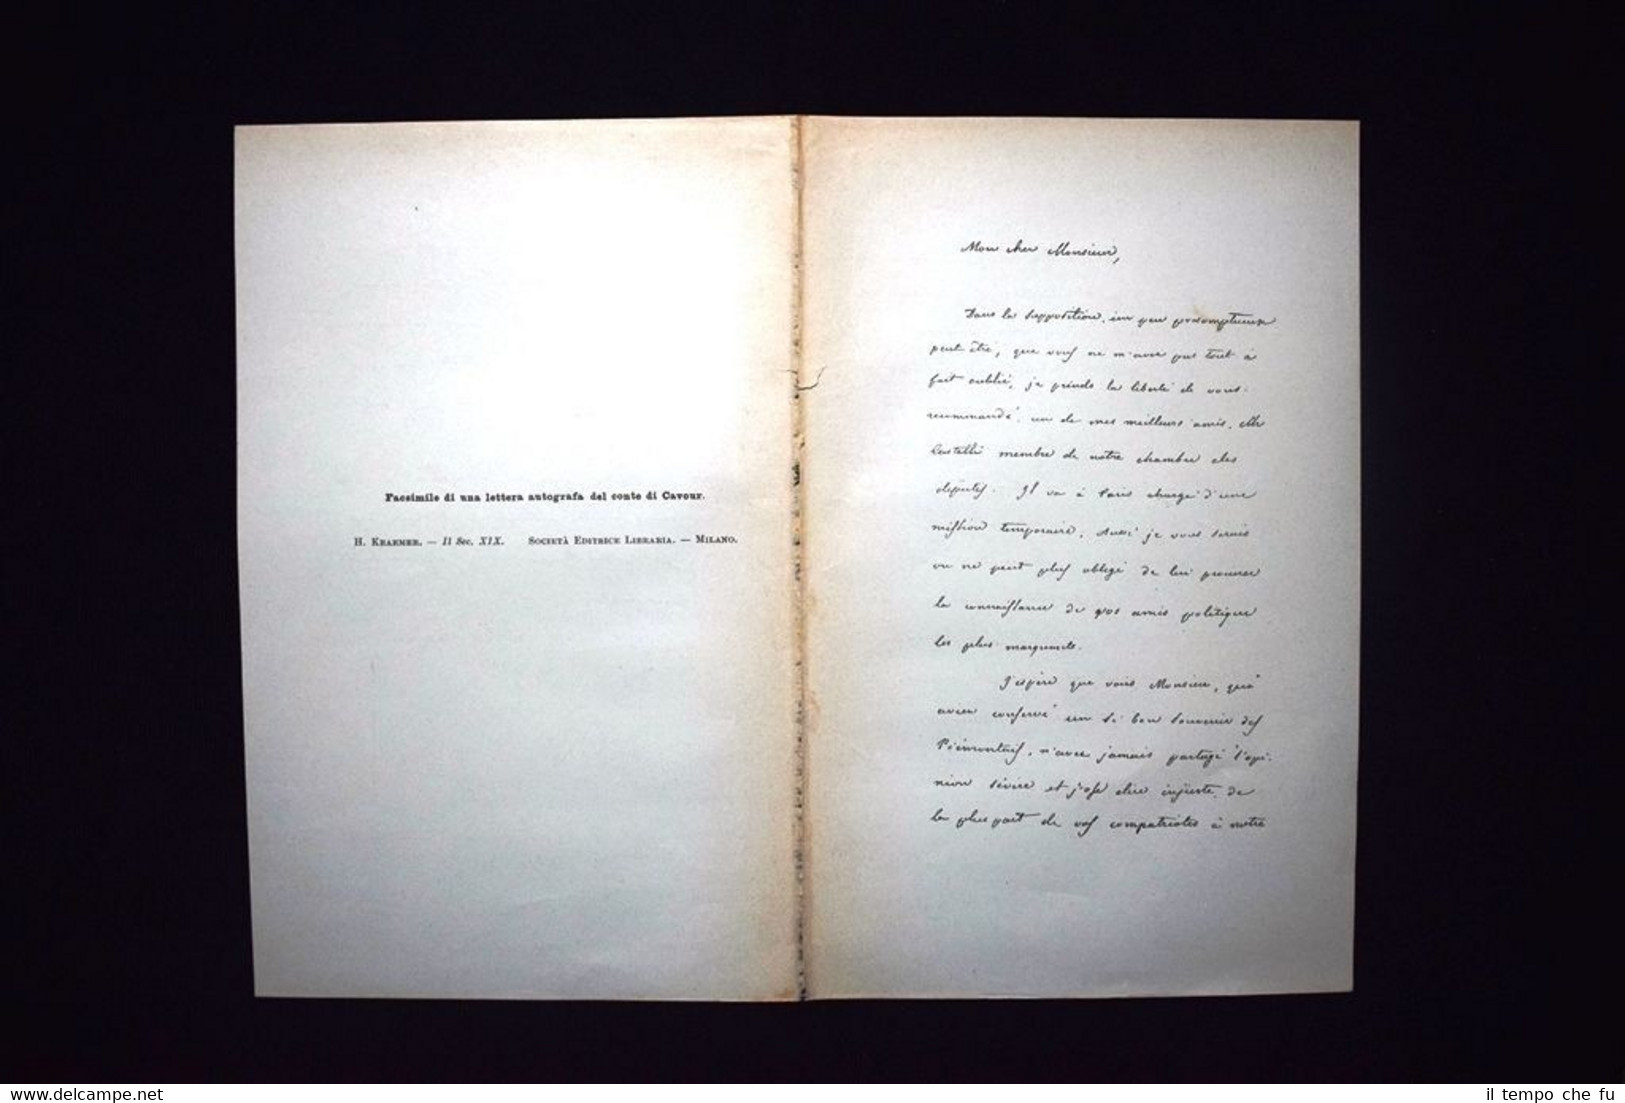 Facsimile di una lettera autografa del conte di Cavour.
H. Kraemer. — Il Sec. XIX. Società Editrice Libraria. — Milano.
Mon cher Monsieur,
Dans la supposition, un peu présomptueuse
peut être, que vous ne m'avez pas tout à
fait oublié, je prends la liberté de vous
recommandé un de mes meilleurs amis, Mr
Castelli membre de notre chambre des
députés. Il va à Paris chargé d'une
mission temporaire. Aussi je vous serais
on ne peut plus obligé de lui procurer
la connaissance de vos amis politiques
les plus marquants.
J'espère que vous Monsieur, qui
avez conservé un si bon souvenir des
Piémontais, n'avez jamais partagé l'opi-
nion sévère et j'ose dire injuste de
la plus part de vos compatriotes à notre
delcampe.net
il tempo che fu